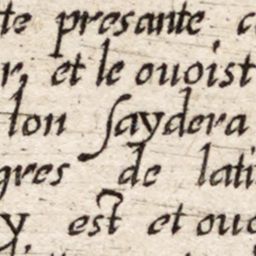 te presante
r, et le ouoist
lon saydera
gres de lati
y est et ouo